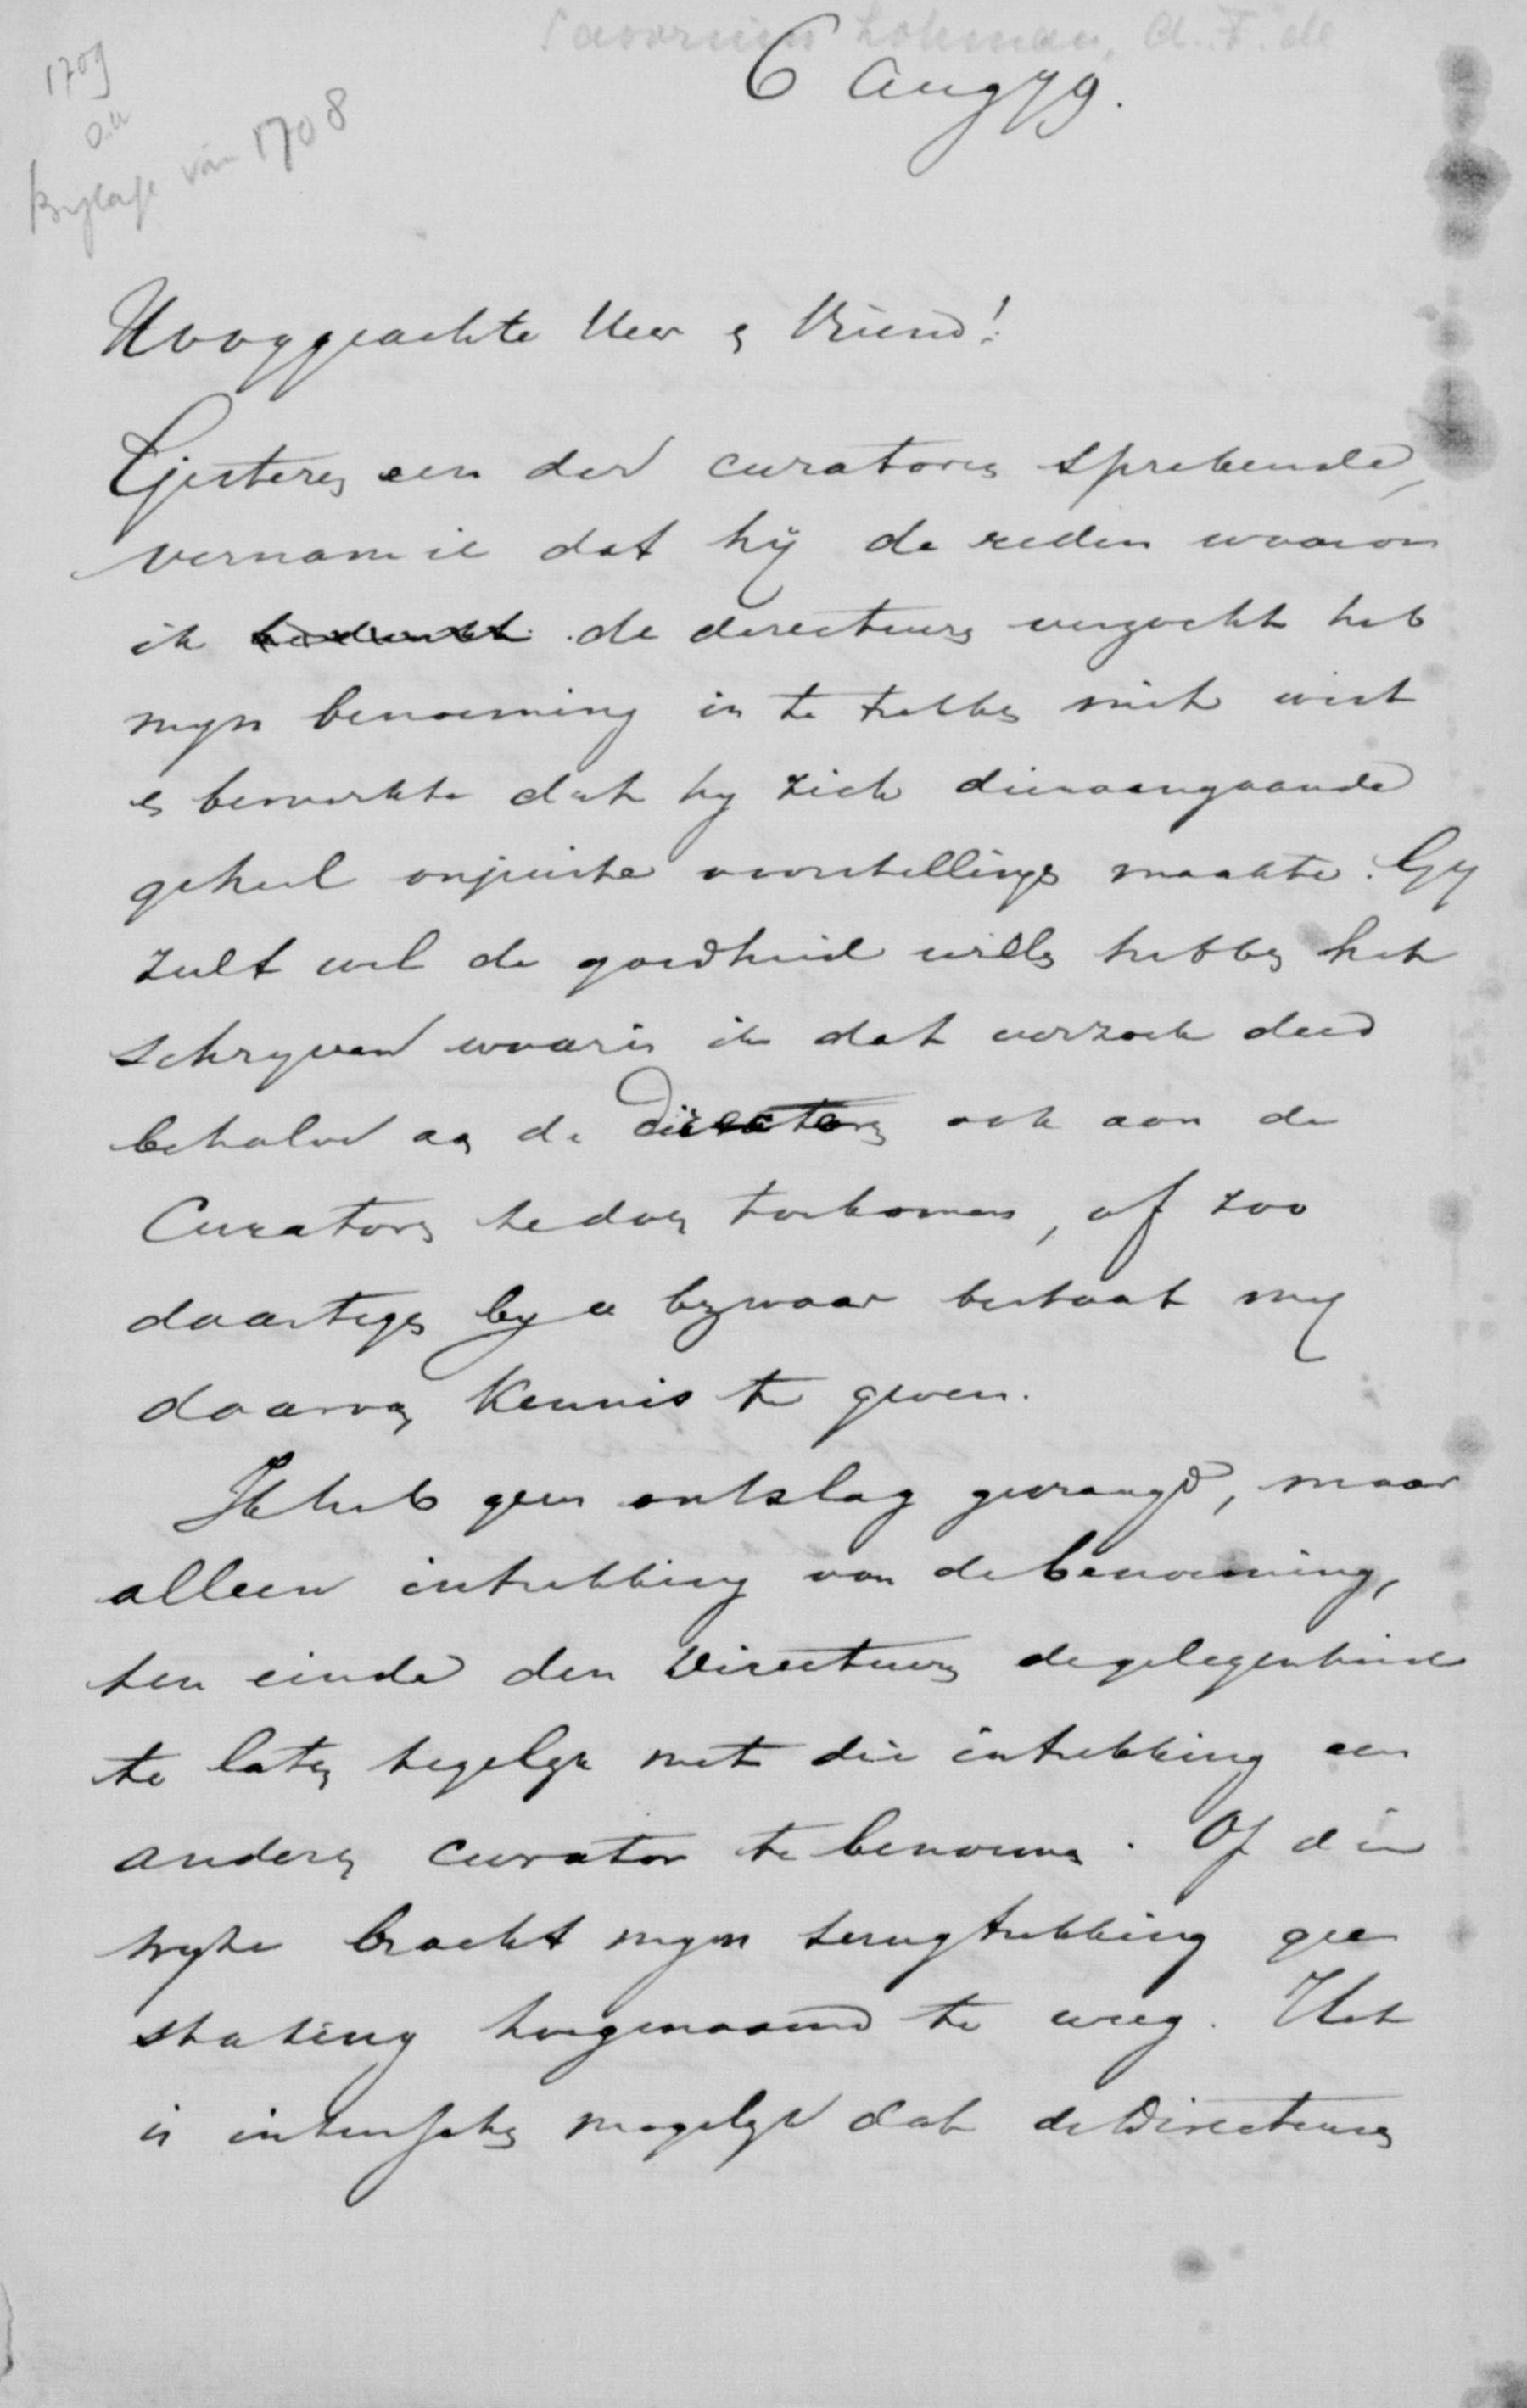 Savornin Lohman, A.F. de
1709
Bijlage van 1708
6 Aug 79.
Hooggeachte Heer en Vriend!
Gisteren een der curatoren sprekende,
vernam ik dat hij de reden waarom
ik de directeuren verzocht heb
mijn benoeming in te trekken niet wist
en bemerkte dat hij zich dienaangaande
geheel onjuiste voorstellingen maakte. Gij
zult wel de goedheid willen hebben het
schrijven waarin ik dat verzoek deed
behalve aan de Directeuren ook aan de
Curatoren te doen toekomen, of zoo
daartegen bij u bezwaar bestaat mij
daarvan kennis te geven.
Ik heb geen ontslag gevraagd, maar
alleen intrekking van de benoeming,
ten einde den Directeuren de gelegenheid
te laten tegelijk met die intrekking een
anderen curator te benoemen. Op die
wijze bracht mijn terugtrekking geen
staking hoegenaamd te weeg. Het
is intusschen mogelijk dat de Directeuren